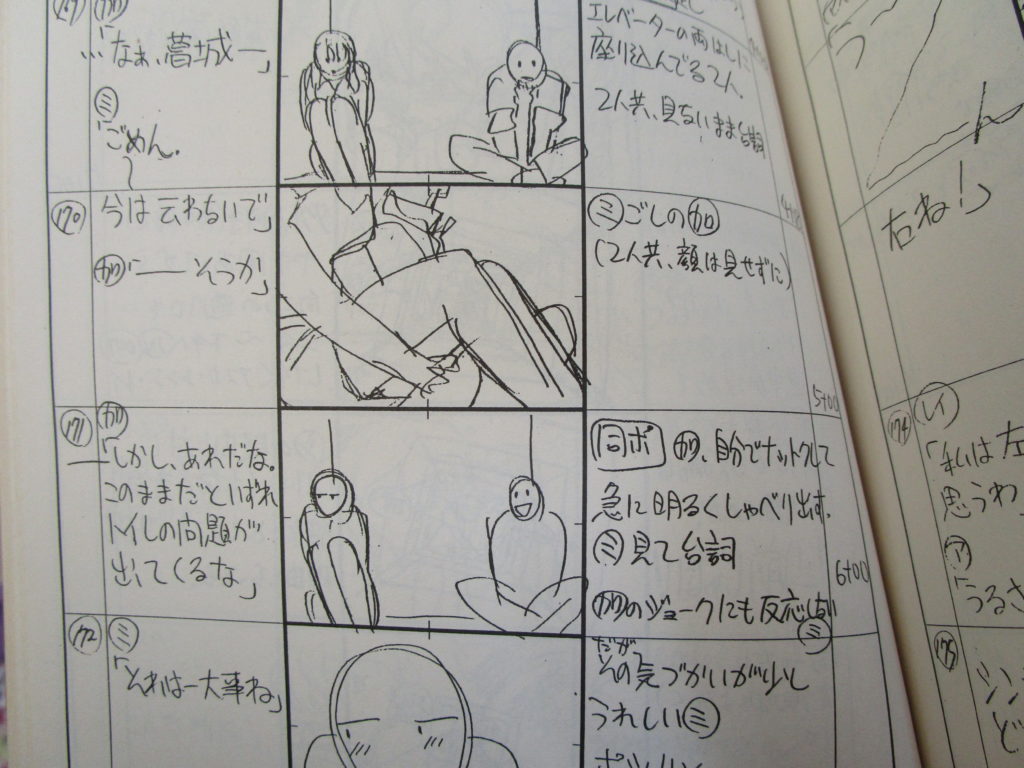 「なぁ、葛城―」
ミ
「ごめん.
エレベーターの両はしに
座り込んでる2人.
2人共、見ないまま台詞
170
今は云わないで」
カジ「―― そうか」
ミごしのカジ
(2人共、顔は見せずに)
5+00
171
カジ
「しかし、あれだな。
このままだといずれ
トイレの問題が
出てくるな」
同ポ カジ、自分でナットクして
急に明るくしゃべり出す.
ミ見て台詞
カジのジョークにも反応しない
ミ
6+00
172
ミ
「それは一大事ね」
だが
その気づかいが少し
うれしいミ
右ね!」
174
レイ
「私は左
思うわ
ア
「うるさ
175
シン
ど